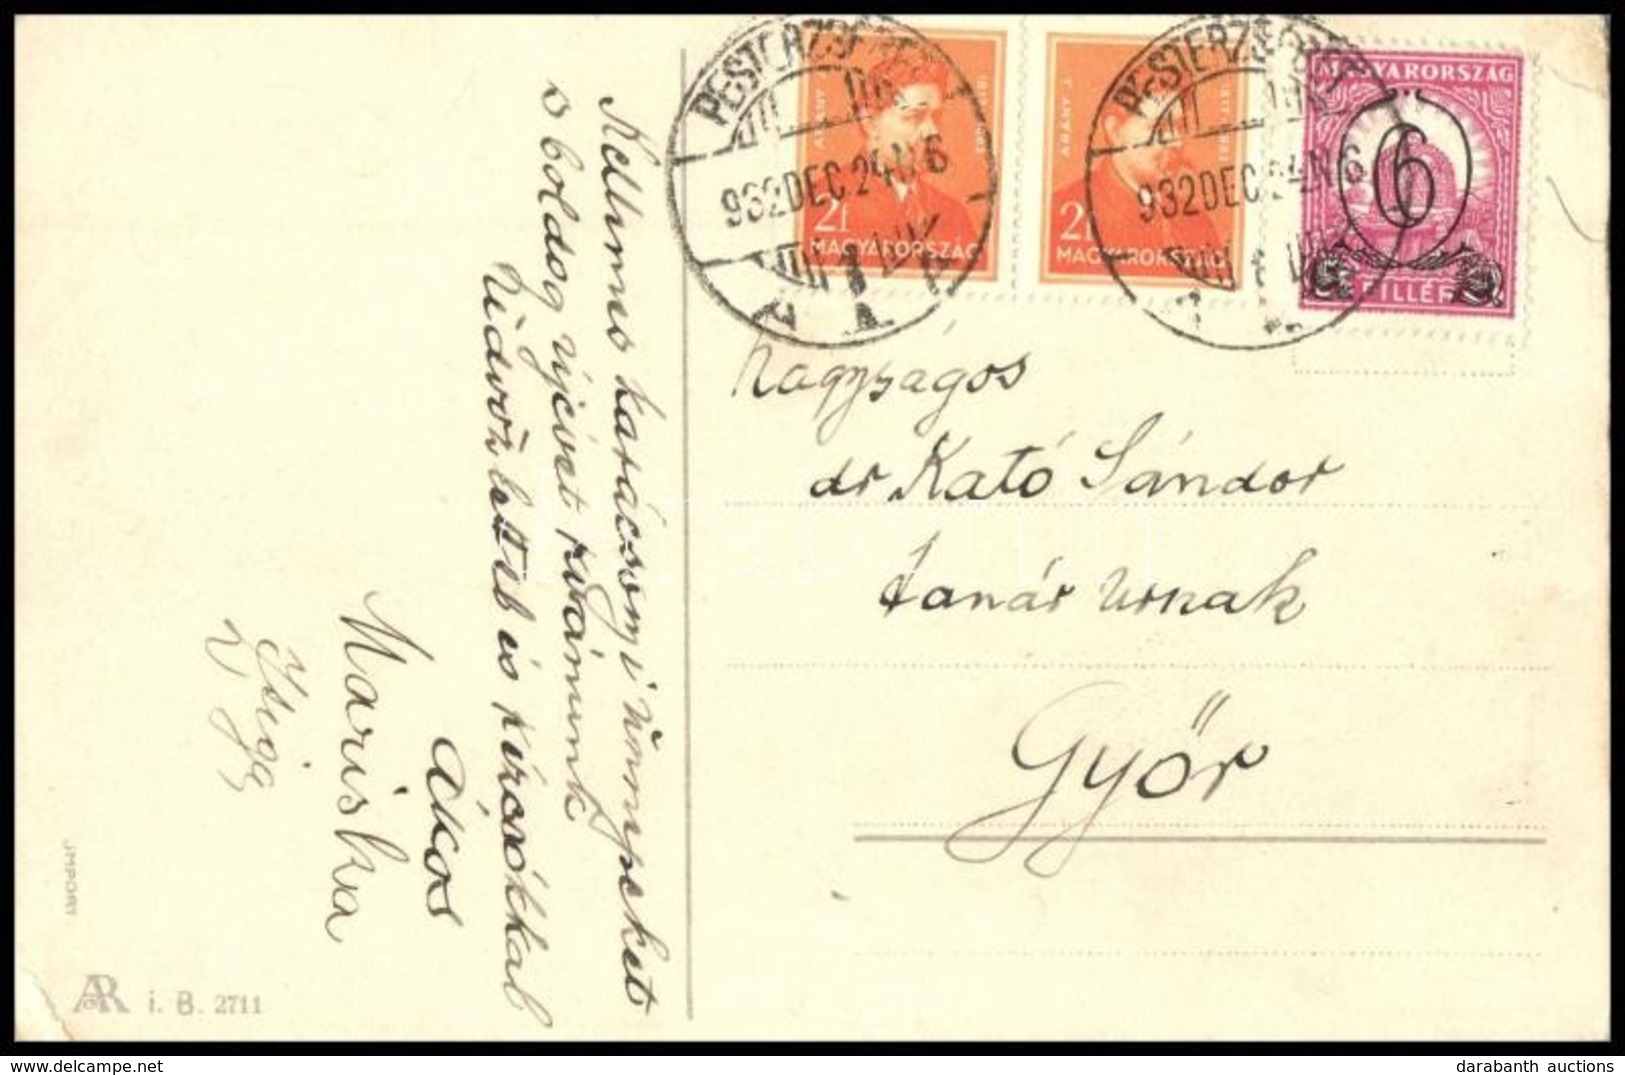 Kellemes karácsonyi ünnepeket
s boldog újévet kívánunk
üdvözlettel és kézcsókkal
Ákos
Mariska
Zsiga
Nagyságos
dr Kató Sándor
tanár urnak
Győr
PESTERZSÉBET
932 DEC 24 N 6
ARANY J.
2f
MAGYARORSZÁG
PESTERZSÉBET
932 DEC 24 N 6
ARANY J.
2f
MAGYARORSZÁG
MAGYARORSZÁG
6
FILLÉR
IMPORT
AR i. B. 2711
darabanth auctions